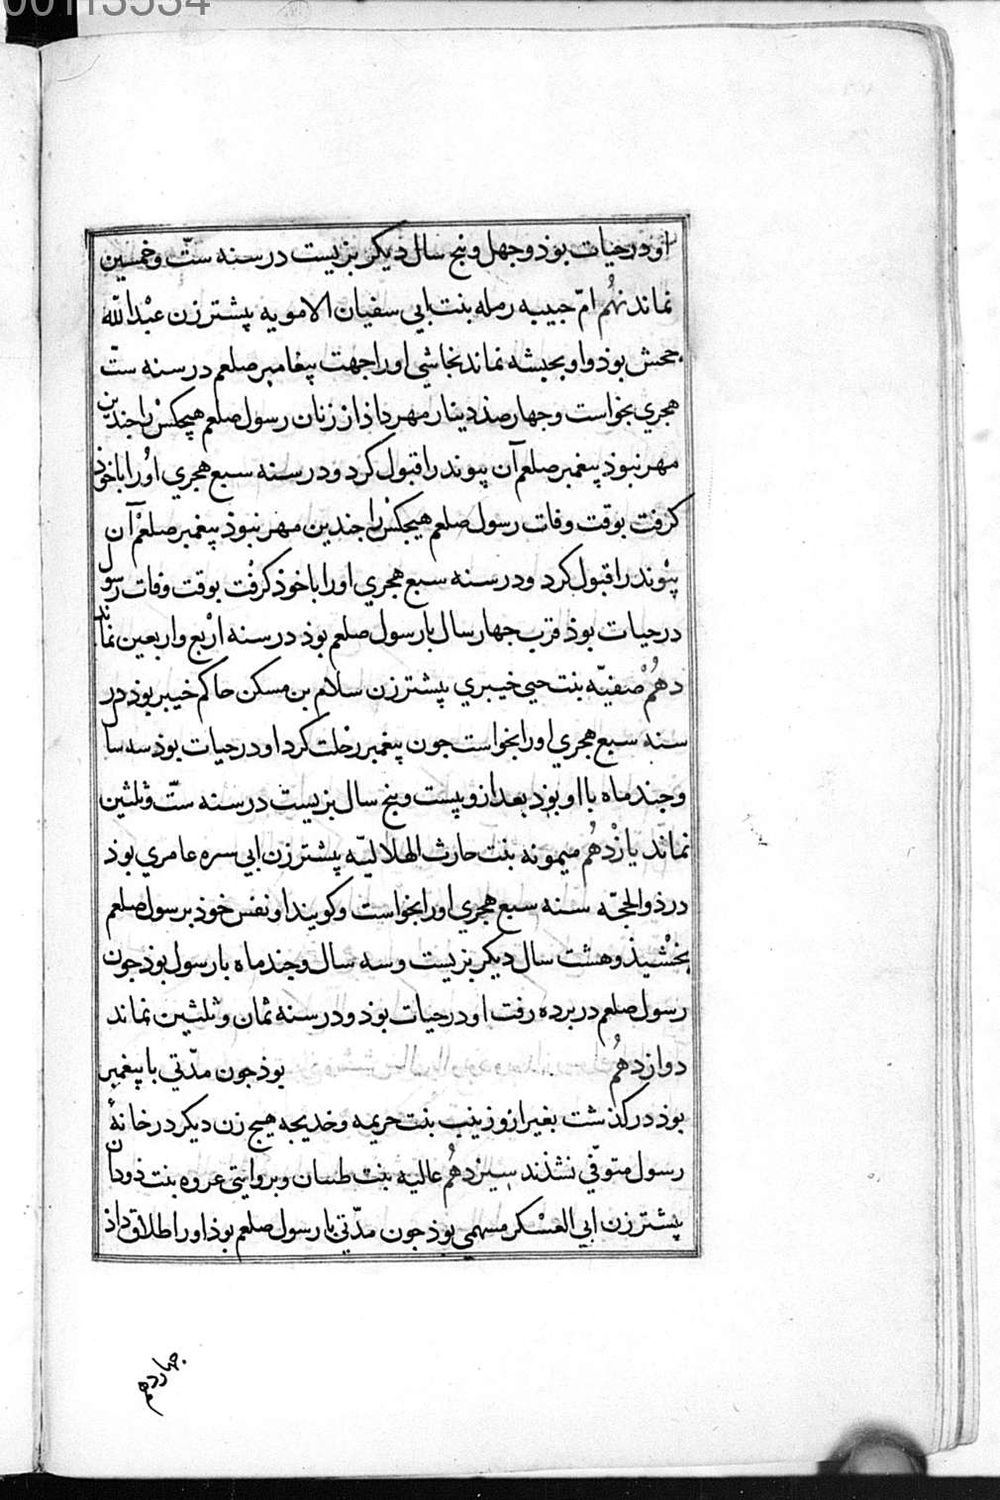 00113534
او در حیات بوذ و جهل و بنج سال دیکر بزیست در سنه ستّ و خمسین
نماند نهُم امّ حبیبه رمله بنت ابی سفیان الامویه پیشتر زن عبْدالله
جحش بوذ و او بحبشه نماند نجاشی او را جهت پیغامبر صلعم در سنه ستّ
هجری بخواست و جهار صذ دینار مهر داذ از زنان رسول صلعم هیچکسْ را جندین
مهر نبوذ پیغمبر صلعم آن پیوند را قبول کرد و در سنه سبع هجری اوُ را با خوذ
کرفت بوقت وفات رسول صلعم هیجکس را جندین مهر نبوذ پیغمبر صلعمْ آن
پیوند را قبول کرد و در سنه سبع هجری او را با خوذ کرفْت بوقت وفات رسول
در حیات بوذ قرب جهار سال با رسول صلعم بوذ در سنه ارْبع و اربعین نماند
دهُمْ صفیّه بنت حیی خیبری پیشتر زن سلام بن مسکن حاکم خیبر بوذ در
سنه سبع هجری او را بخواست جون پیغمبر رحلت کرد او در حیات بوذ سه سال
و جند ماه با او بوذ بعد ازو بیست و بنج سال بزیست در سنه ستّ و ثلثین
نماند یازْدهُم میمونه بنت حارث الهلالیّه پیشتر زن ابی سره عامری بوذ
در ذوالحجّه سنه سبع هجری او را بخواست و کویند او نفس خوذ برسول صلعم
بخشیذ و هشت سال دیکر بزیست و سه سال و جند ماه با رسول بوذ جون
رسول صلعم در برده رفت او در حیات بوذ و در سنه ثمان و ثلثین نماند
دوازدهُم بوذ جون مدّتی با پیغمبر
بوذ در کذشت بغیر ازو زینب بنت خریمه و خدیجه هیج زن دیکر در خانۀ
رسول متوفّی نشذند سیزدهُم عالیه بنت طبیان و بروایتی عروه بنت ذودان
پیشتر زن ابی العسْکر مسهمی بوذ جون مدّتی با رسول صلعم بوذ او را طلاق داذ
جهاردهم